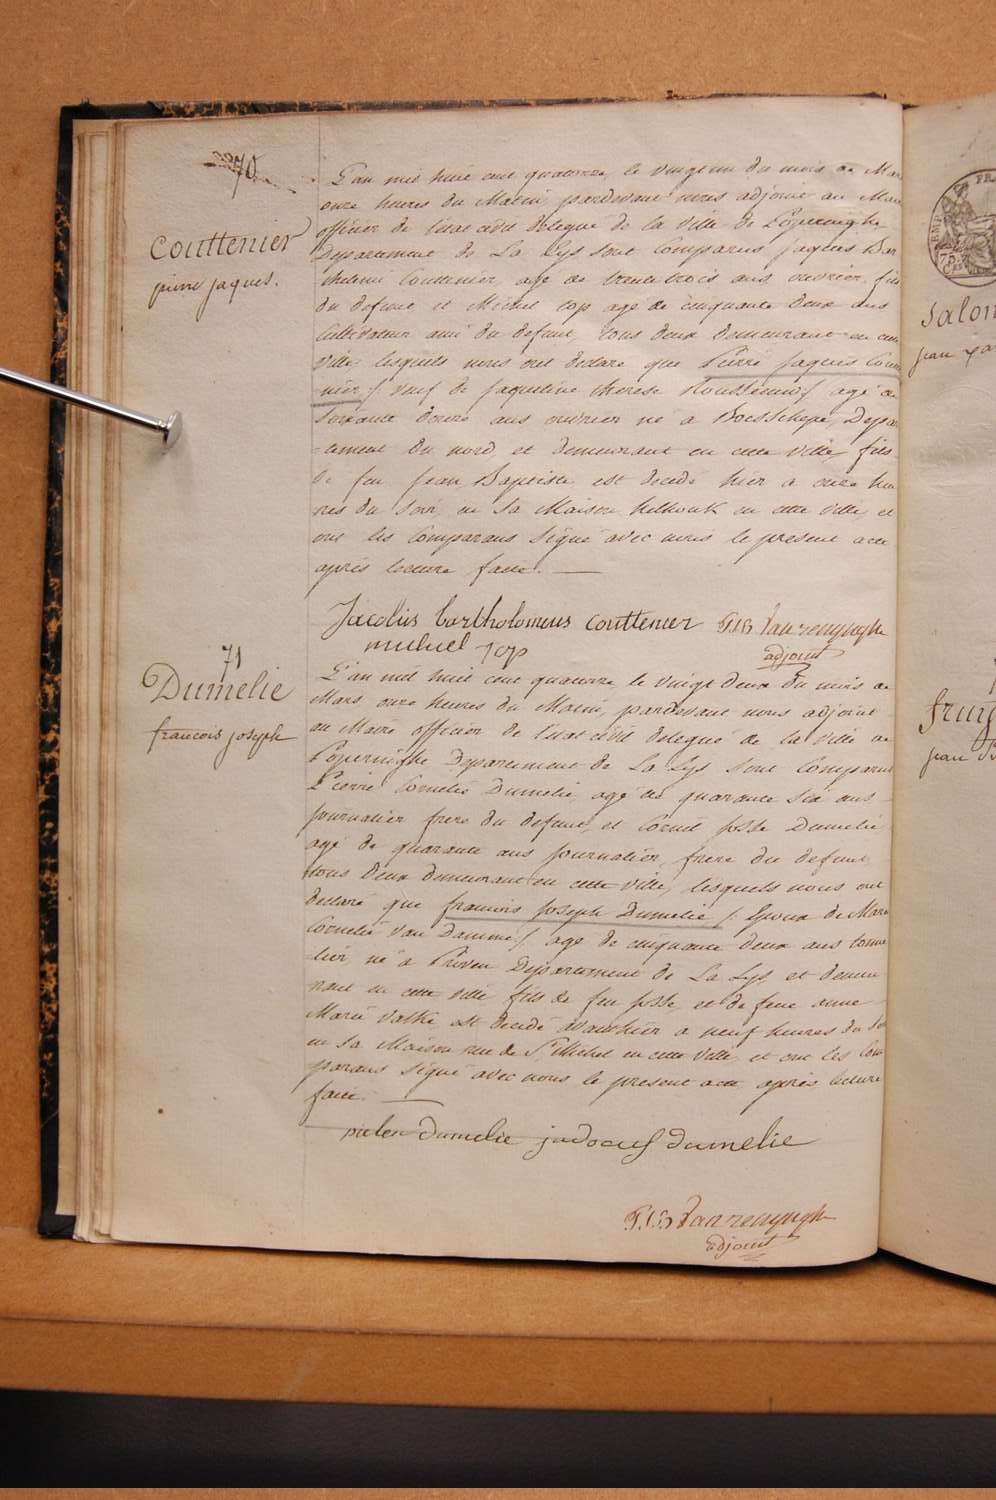 70
Couttenier
pierre jaques.
L'an mil huit cent quatorze, le vingt un du mois de Mars
onze heures du Matin, pardevant nous adjoint au Maire
officier de l'etat civil delegué de la Ville de Poperinghe
Departement de La Lys sont Comparus Jaques Bar
thelemi Couttenier, agé de trente trois ans, ouvrier, fils
du defunt, et Michel Top agé de cinquante deux ans
Cultivateur ami du defunt, tous deux demeurant en cette
Ville, lesquels nous ont declaré que Pierre Jaques Coutte
nier /: veuf de Jaqueline therese :/ agé de
soixante douze ans ouvrier né a Boesschepe, Depar
-tement du nord, et demeurant en cette ville, fils
De feu Jean Baptiste est decedé hier a onze heu
res du soir, en sa Maison en cette ville, et
ont les Comparans signé avec nous le present acte
après lecture faite.
Jacobus bartholomeus couttenier P.J.B Vanrenynghe
michiel Top adjoint
71
Dumelie
francois joseph
L'an mil huit cent quatorze, le vingt deux du mois de
Mars, onze heures du Matin, pardevant nous adjoint
au Maire officier de l'etat civil delegué de la ville de
Poperinghe Departement de La Lys sont Comparus
Pierre Cornelie Dumelie, agé de quarante six ans
journalier frere du defunt, et Corneil josse Dumelie
agé de quarante ans journalier, frere du defunt,
tous deux demeurant en cette ville, lesquels nous ont
declaré que francois joseph Dumelie /: Epoux de Marie
Cornelie Van Damme :/ agé de cinquante deux ans tonne
-lier, né a Proven Departement de La Lys et demeu
rant en cette ville fils de feu josse, et de feue anne
Marie est decedé avanthier a neuf heures du soir
en sa Maison rue de St Michel en cette Ville, et ont les Com
parans signé avec nous le present acte après lecture
faite.
pieter Dumelie judocus dumelie
P.J.B Vanrenynghe
adjoint
FRA
EMP
75
jean
jean